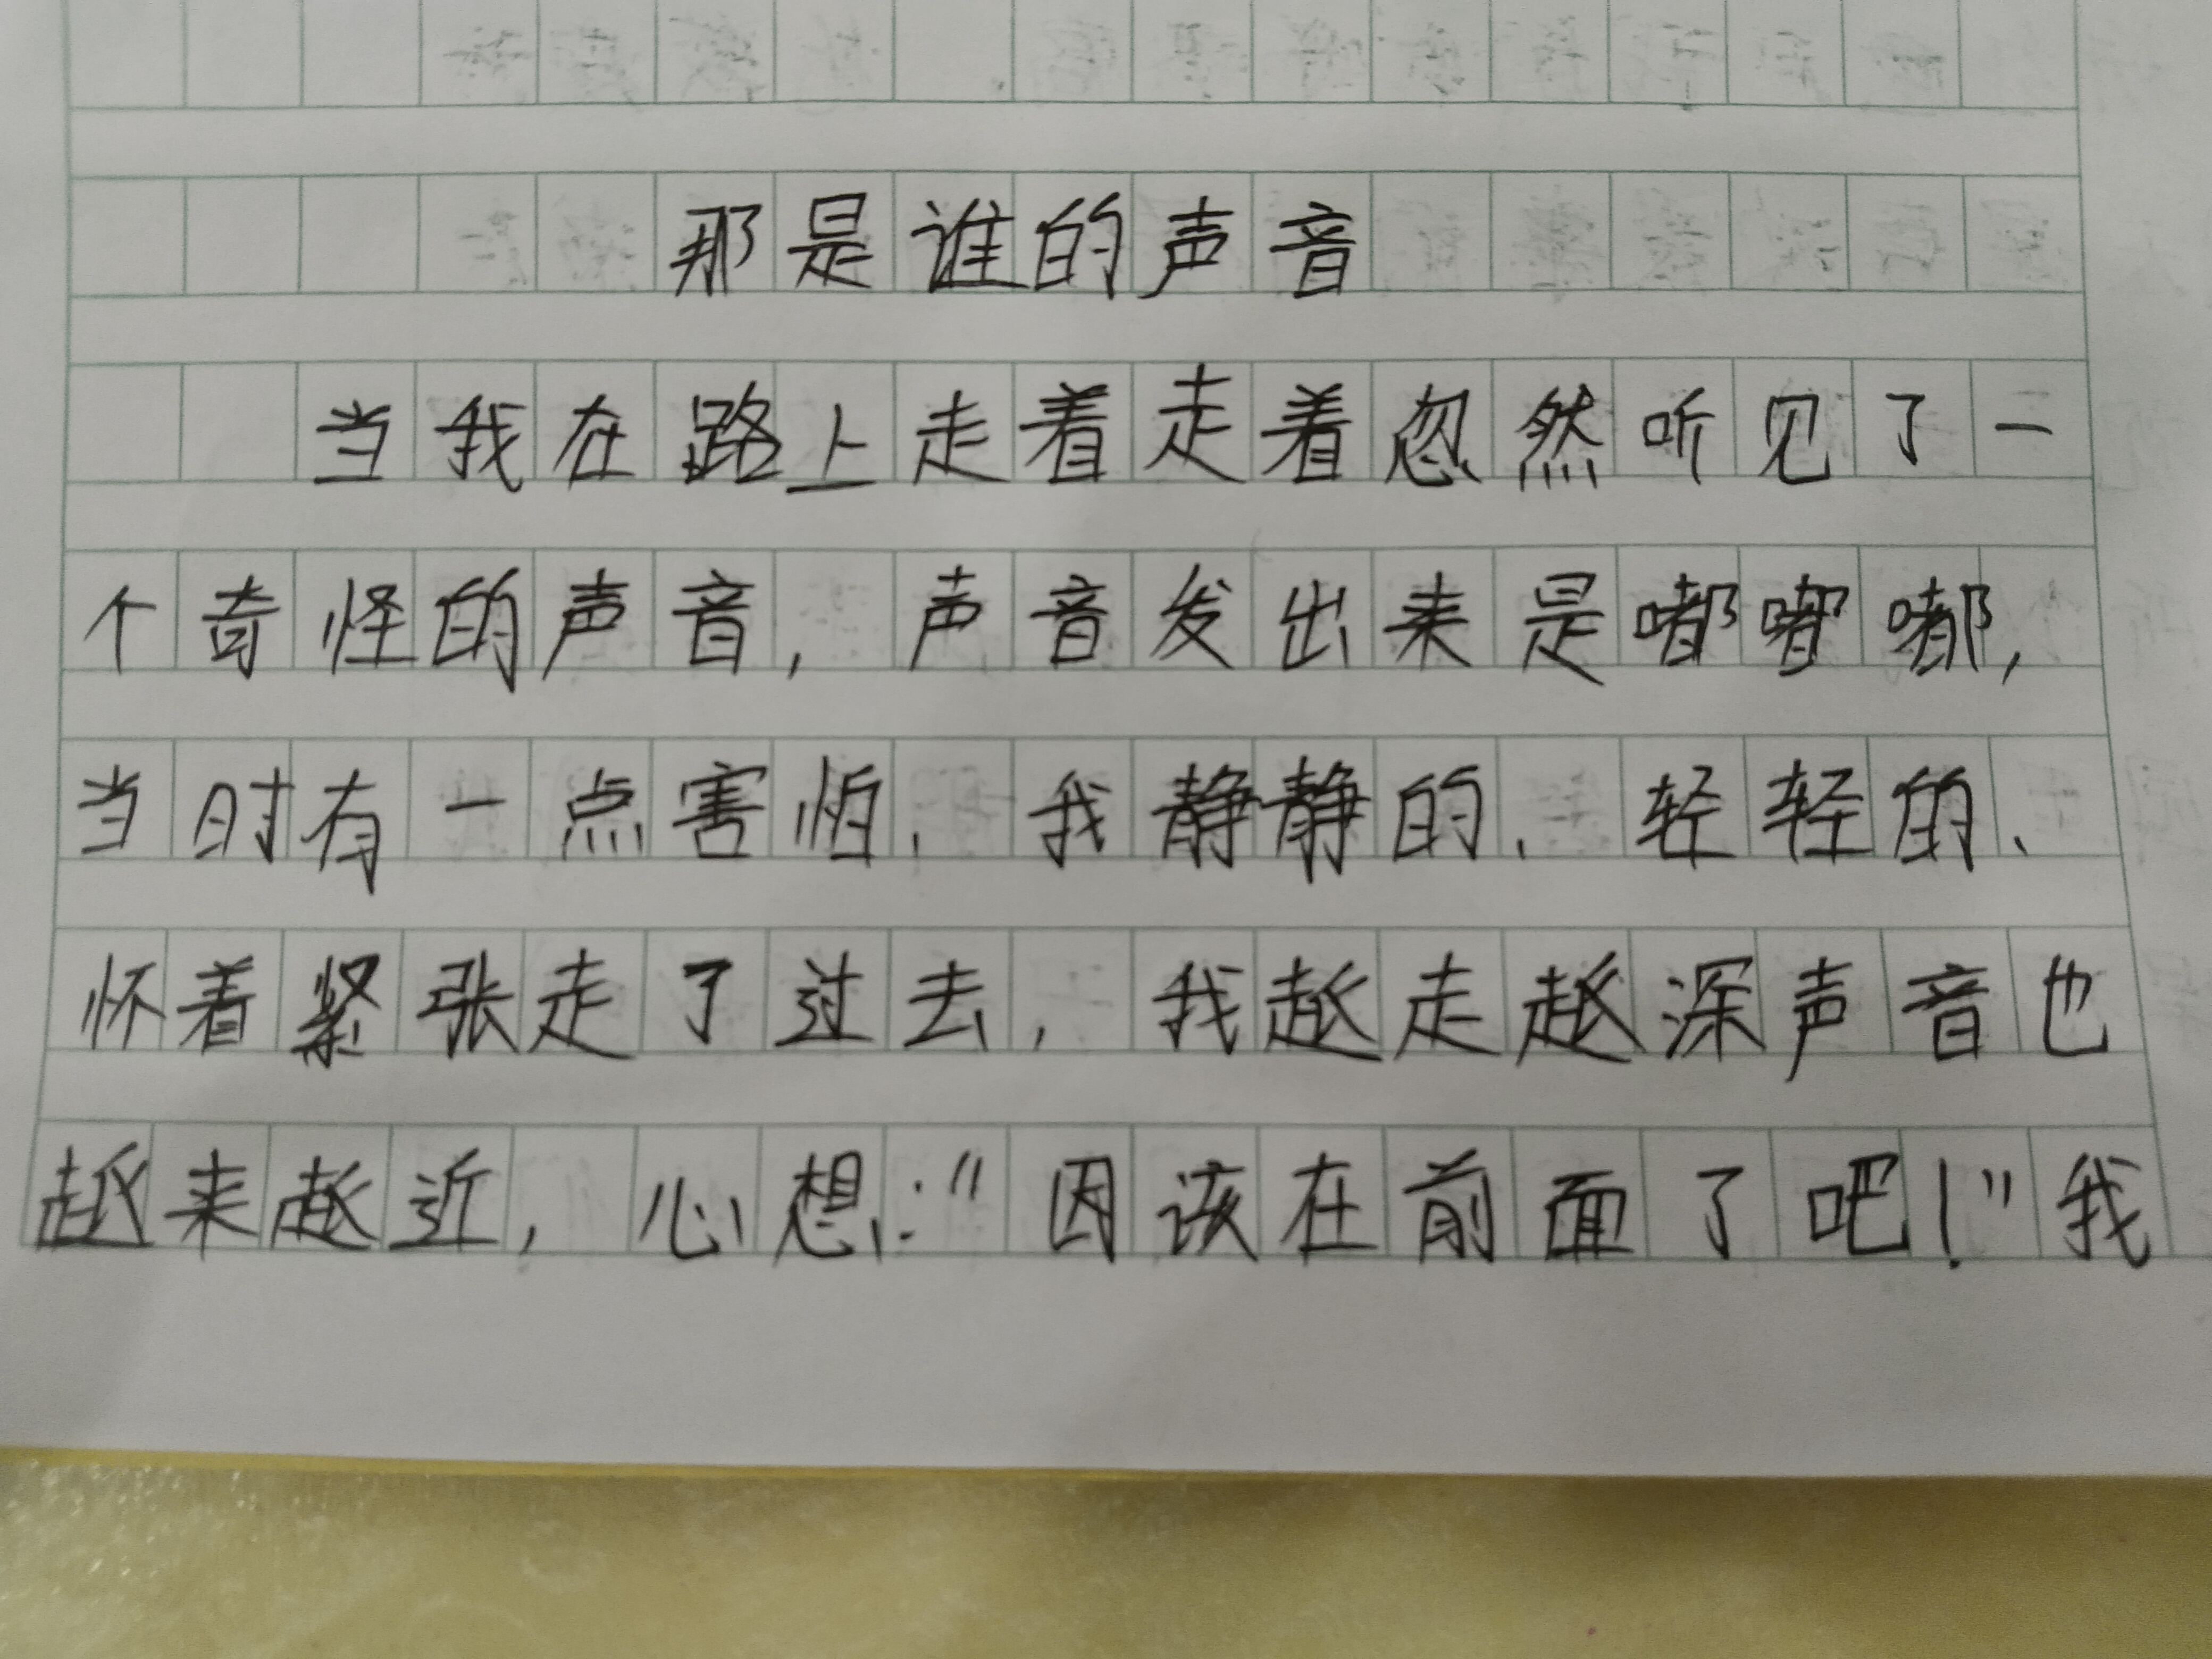 那是谁的声音
当我在路上走着走着忽然听见了一
个奇怪的声音，声音发出来是嘟嘟嘟，
当时有一点害怕，我静静的、轻轻的、
怀着紧张走了过去，我越走越深声音也
越来越近，心想：“因该在前面了吧！”我